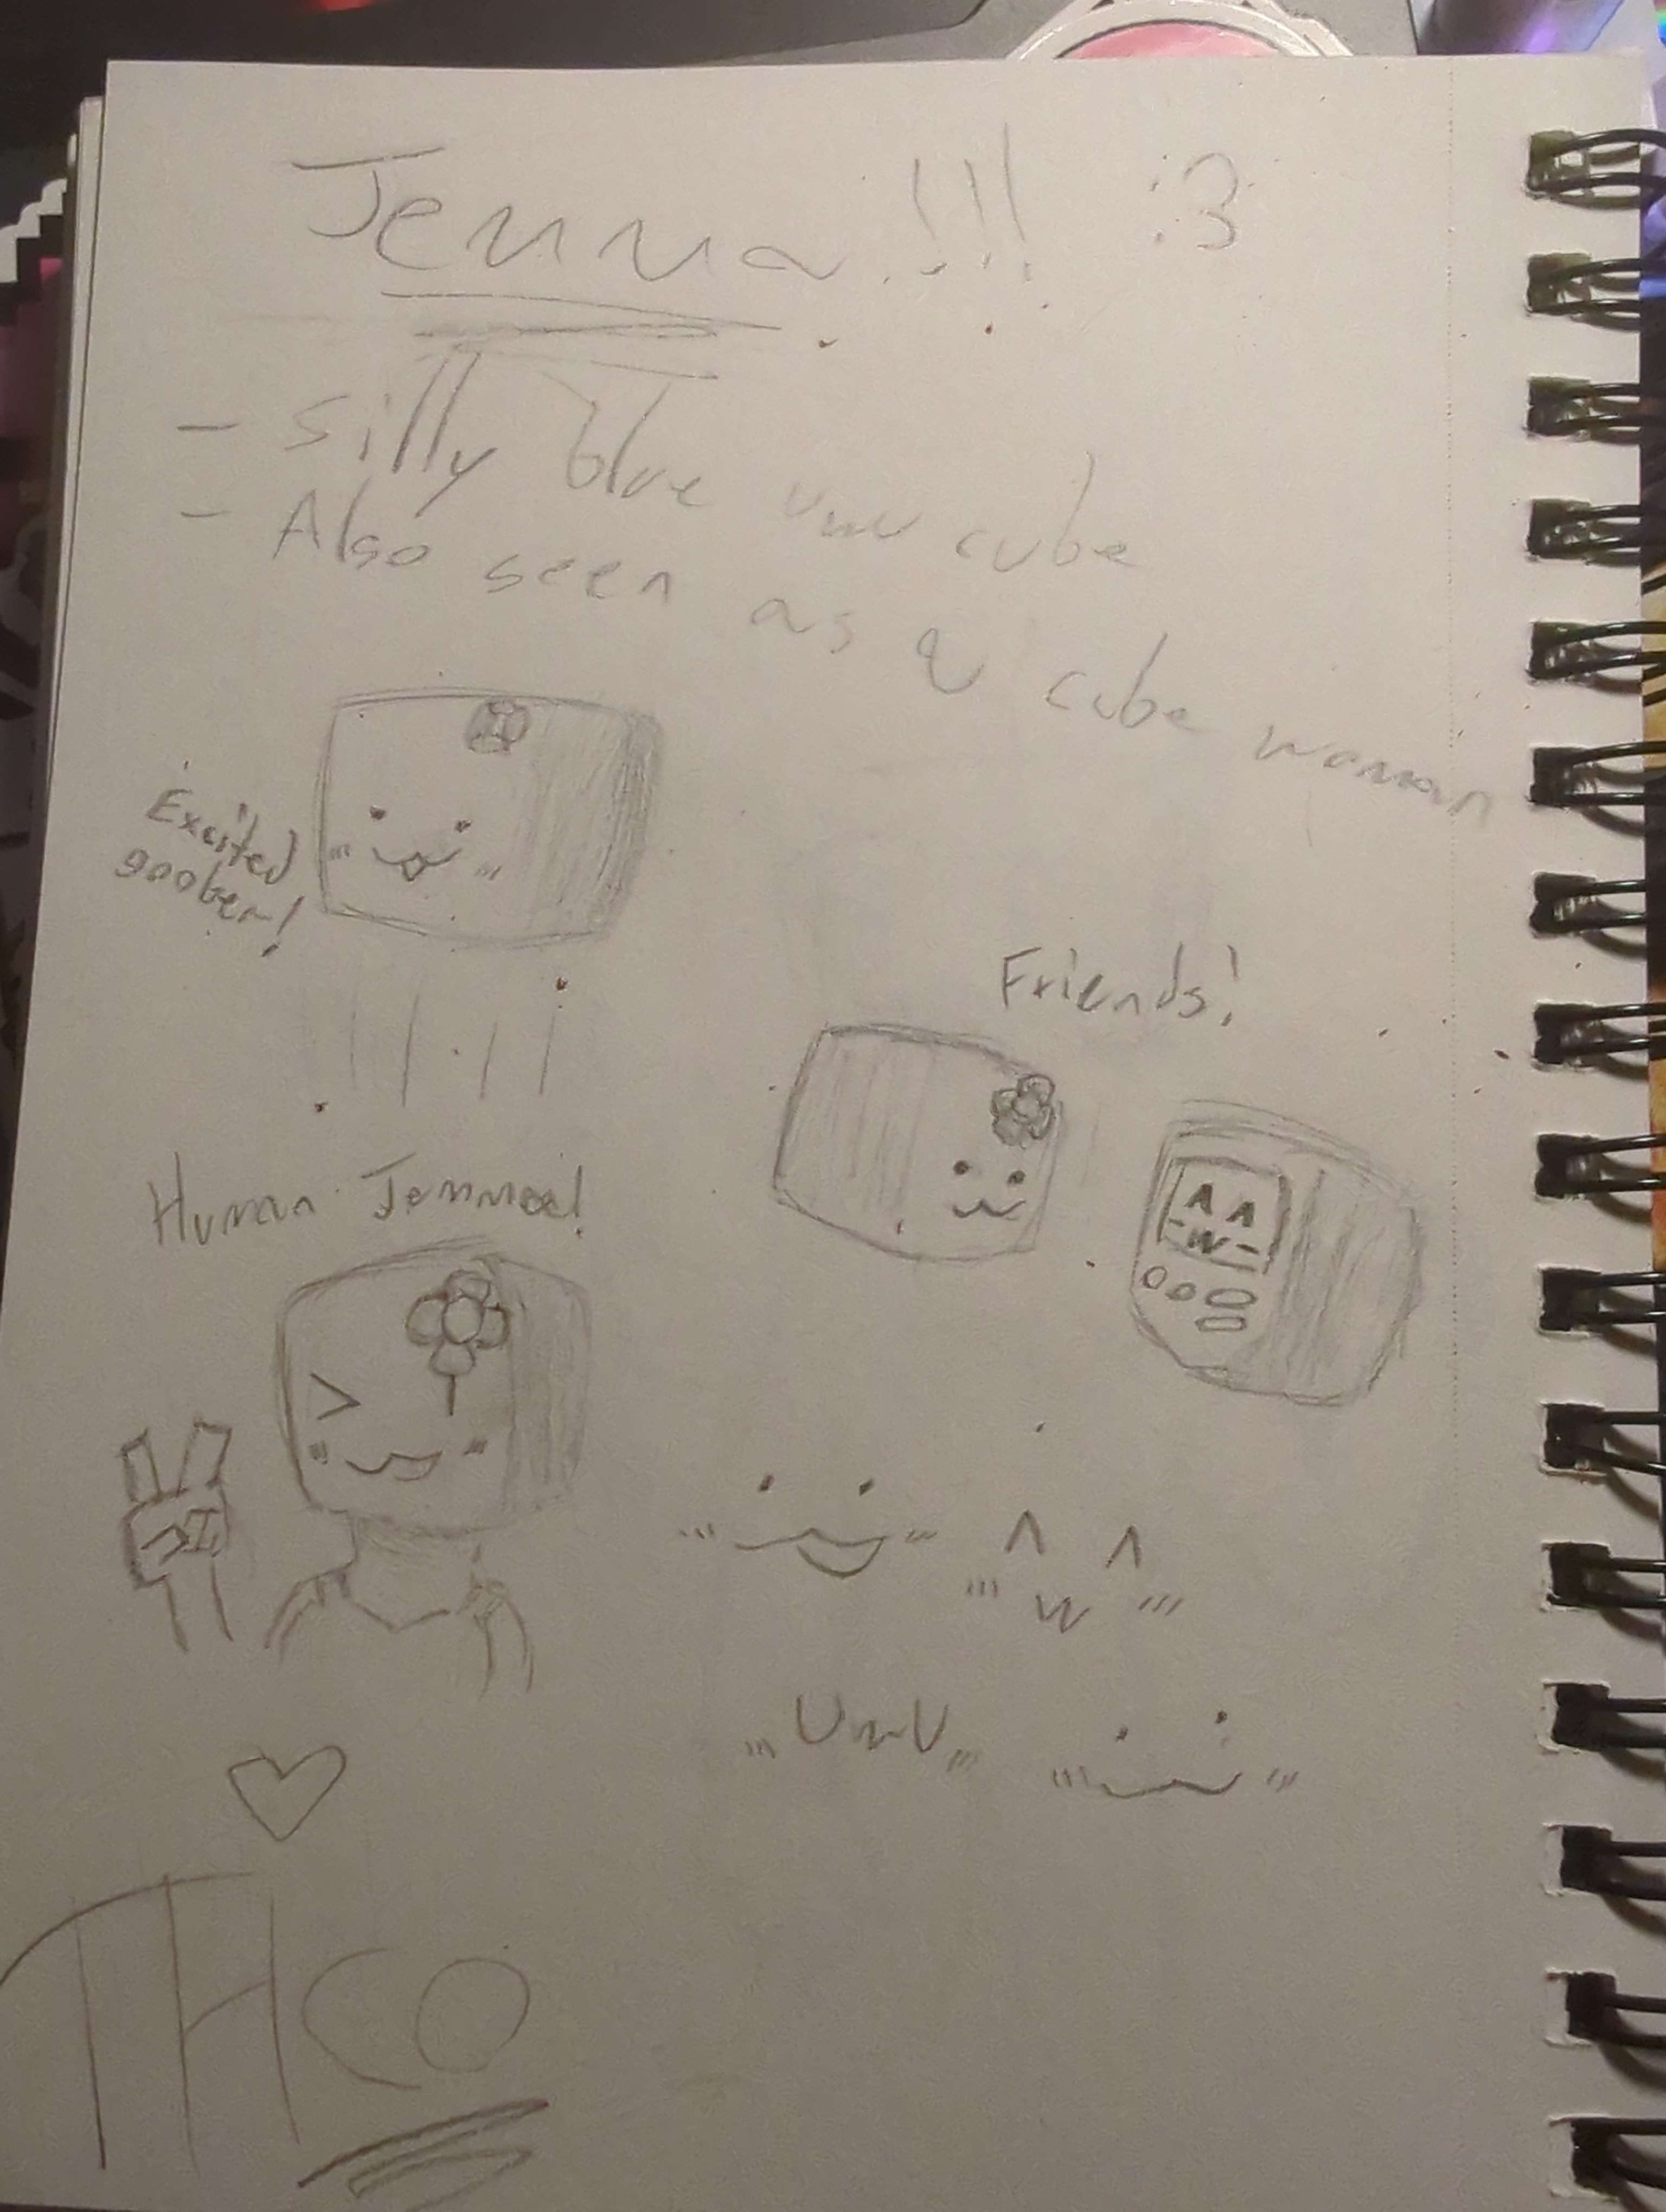 Jenna!!! :3
- silly blue UwU cube
- Also seen as a cube woman
Excited
goober!
Friends!
^ ^
- w -
Human Jenna!
^ ^
w
UwU
THCO